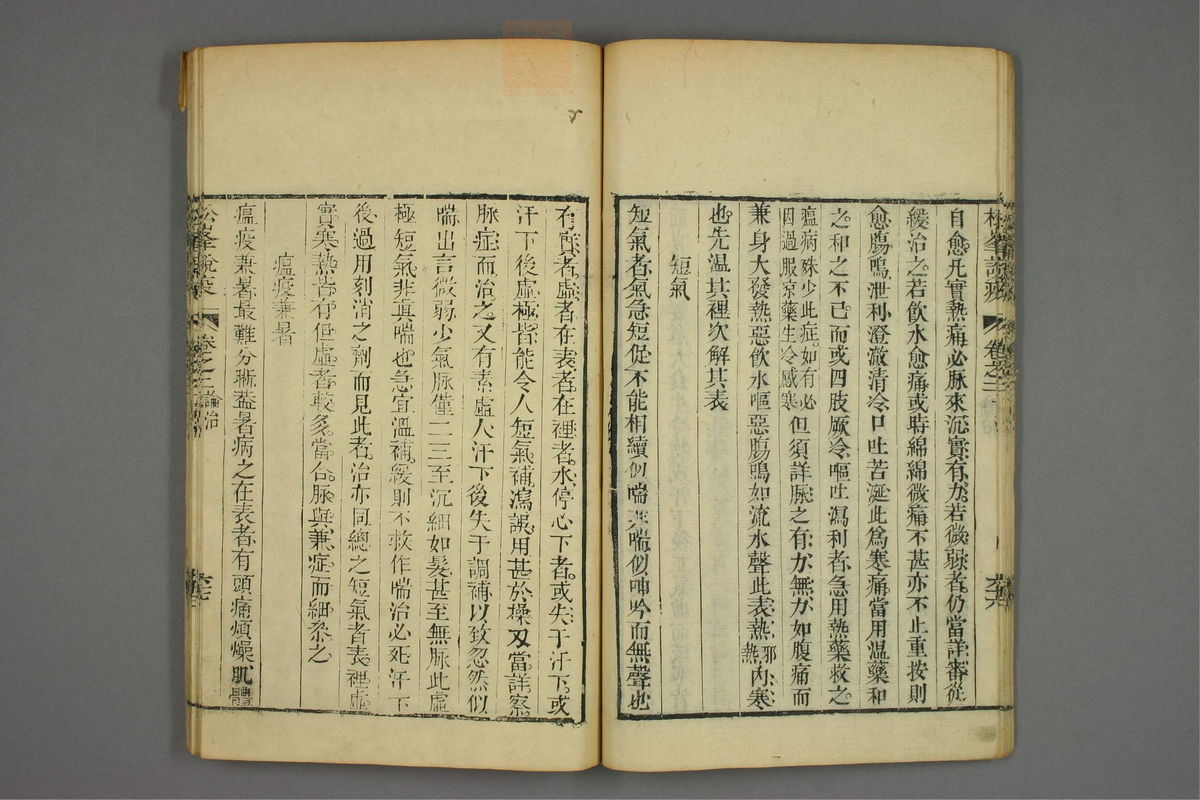 松峯說疫
卷之二
六十六
自愈凡實熱痛必脉來沉實有力若微弱者仍當詳審從
緩治之若飲水愈痛或時綿綿微痛不甚亦不止重按則
愈腸鳴泄利澄澈清冷口吐苦涎此爲寒痛當用温藥和
之和之不已而或四肢厥冷嘔吐瀉利者急用熱藥救之
瘟病殊少此症如有必
因過服凉藥生冷感寒
但須詳脈之有力無力如腹痛而
兼身大發熱惡飲水嘔惡腸鳴如流水聲此表熱
邪熱
内寒
也先温其裡次解其表
短氣
短氣者氣急短促不能相續似喘非喘似呻吟而無聲也
有實者虛者在表者在裡者水停心下者或失于汗下或
汗下後虛極皆能令人短氣補瀉誤用甚於操刃當詳察
脉症而治之又有素虛人汗下後失于調補以致忽然似
喘出言微弱少氣脉僅二三至沉細如髮甚至無脉此虛
極短氣非眞喘也急宜溫補緩則不救作喘治必死汗下
後過用刻消之劑而見此者治亦同總之短氣者表裡虛
實寒熱皆有但虛者較多當合脉與兼症而細參之
瘟疫兼暑
瘟疫兼暑最難分晰蓋暑病之在表者有頭痛煩燥肌體
松峯說疫
卷之二論治
六十七